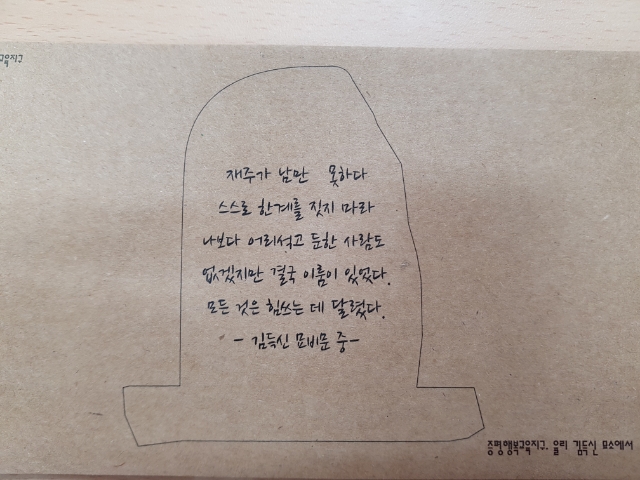 교육지구
재주가 남만 못하다
스스로 한계를 짓지 마라
나보다 어리석고 둔한 사람도
없겠지만 결국 이룸이 있었다.
모든 것은 힘쓰는 데 달렸다.
- 김득신 묘비문 중-
증평행복교육지구. 우리 김득신 묘소에서